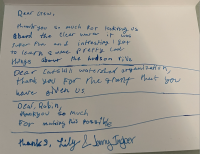 Dear crew,
thank you so much for taking us
about the clear water it was
fun and intresting I got
to learn some pretty cool
things about the hudson river
Dear watershed organization,
thank you for the grant that you
have given us
Dear, Robin,
thank you so much
for making this possible
thanks, Lily &